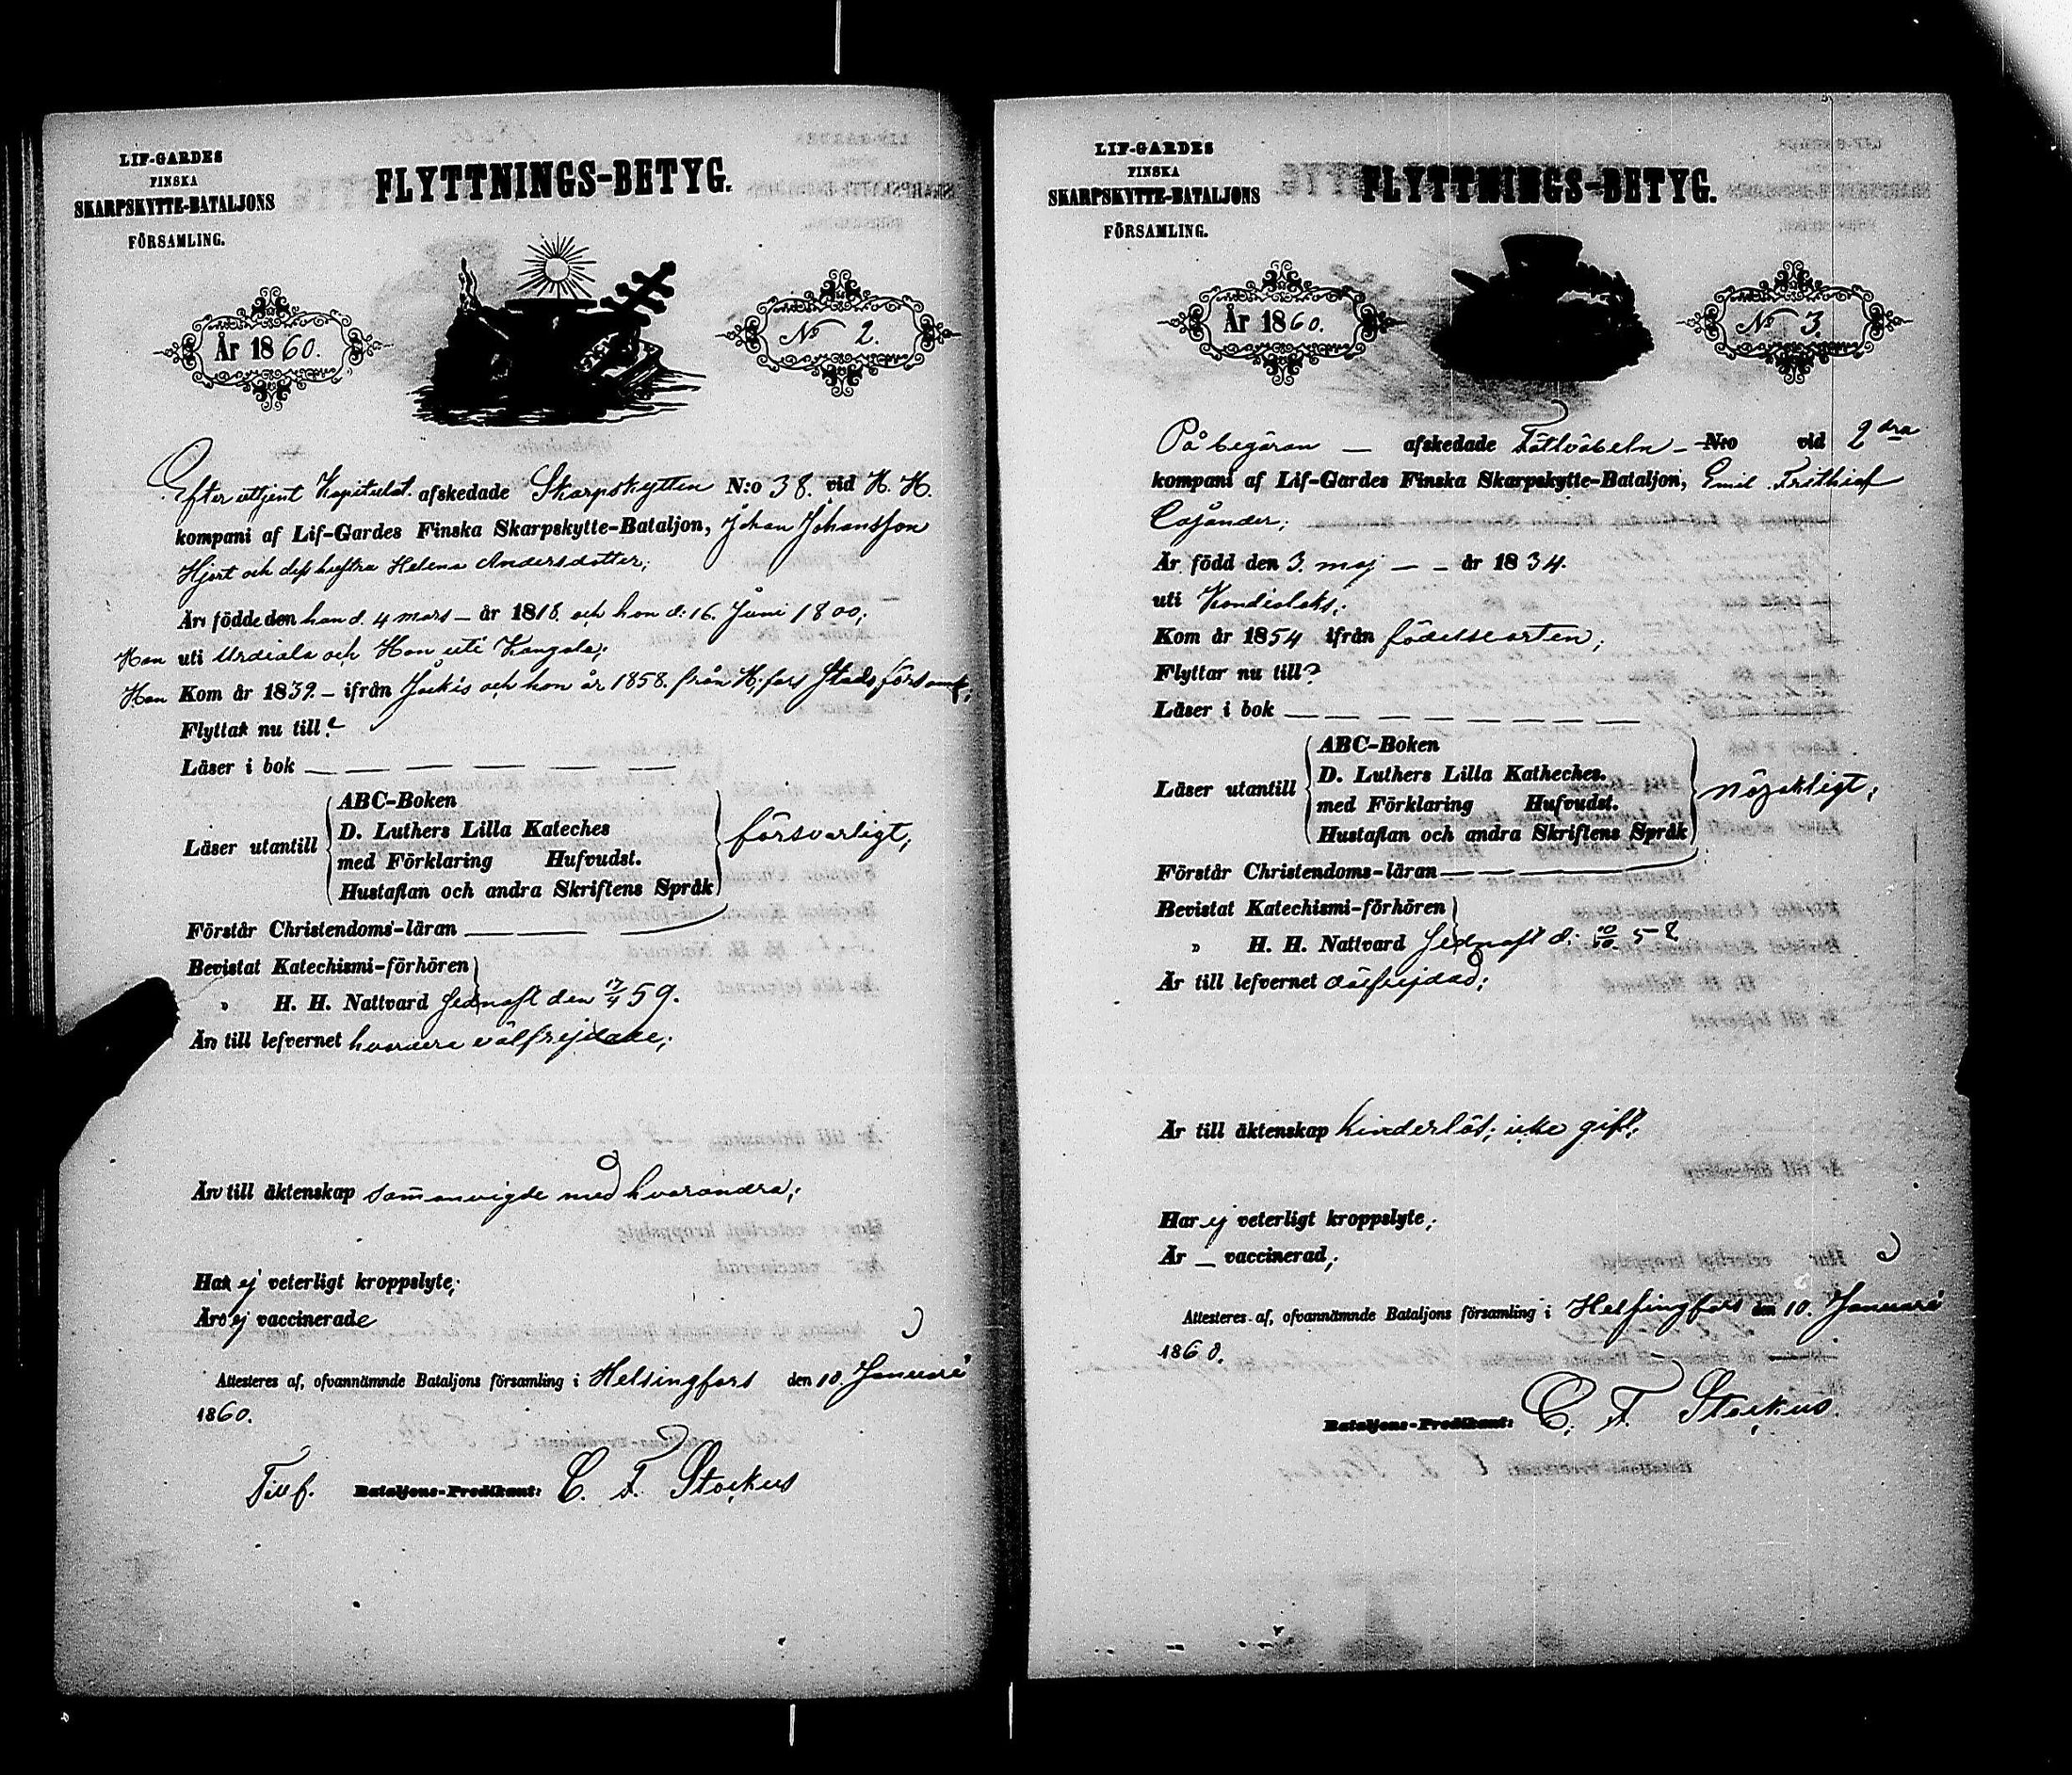 LIF-GARDES
FINSKA
SKARPSKYTTE-BATALJONS
FÖRSAMLING.
FLYTTNINGS-BETYG.
År 1860.
No 2.
Efter uttjent Kapitulat. afskedade Skarpskytten N:o 38. vid H. H.
kompani af Lif-Gardes Finska Skarpskytte-Bataljon, Johan Johansson
Hjort och dess hustru Helena Andersdotter;
Äro födde den han d. 4 mars — år 1818 och hon d: 16. Juni 1800;
Han uti Urdiala och Hon uti Kangala;
Han Kom år 1839. — ifrån Jockis och hon år 1858. från H:fors Stads förs
Flyttat nu till?
Läser i bok — — — — — —
Läser utantill
ABC-Boken
D. Luthers Lilla Kateches
med Förklaring Hufvudst.
Hustaflan och andra Skriftens Språk
försvarligt;
Förstår Christendoms-läran — — —
Bevistat Katechismi-förhören
" H. H. Nattvard sednast den 17/4 59.
Äro till lefvernet hvardera välfrejdade;
Äro till äktenskap sammanvigde med hvarandra;
Har ej veterligt kroppslyte;
Äro ej vaccinerade
Attesteres af, ofvannämnde Bataljons församling i Helsingfors den 10. Januari
1860.
Tillf. Bataljons-Predikant: C. F. Stockus
LIF-GARDES
FINSKA
SKARPSKYTTE-BATALJONS
FÖRSAMLING.
FLYTTNINGS-BETYG.
År 1860.
No 3.
På begäran — afskedade Fältväbeln — N:o vid 2dra
kompani af Lif-Gardes Finska Skarpskytte-Bataljon, Emil Frithiof
Cajander;
Är född den 3. maj — — år 1834.
uti Kondiolaks;
Kom år 1854 ifrån födelseorten;
Flyttar nu till?
Läser i bok — — — — — — — —
Läser utantill
ABC-Boken
D. Luthers Lilla Katheches.
med Förklaring Hufvudst.
Hustaflan och andra Skriftens Språk
nöjaktigt;
Förstår Christendoms-läran — — —
Bevistat Katechismi-förhören
" H. H. Nattvard sednast d. 58
Är till lefvernet välfrejdad;
Är till äktenskap hinderlös; icke gift;
Har ej veterligt kroppslyte;
Är — vaccinerad;
Attesteres af, ofvannämnde Bataljons församling i Helsingfors den 10. Januari
1860.
Bataljons-Predikant: C. F. Stockus.